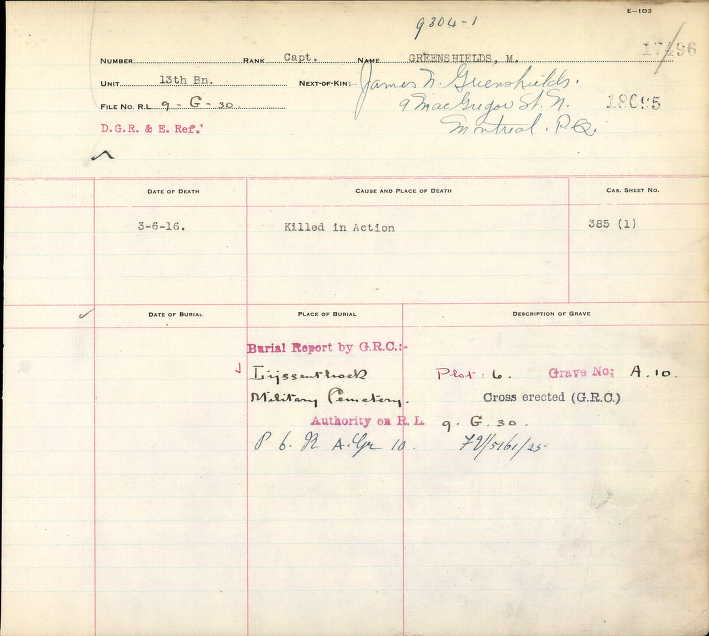 E-103
9304-1
17496
NUMBER RANK Capt. NAME GREENSHIELDS, M.
UNIT 13th Bn. NEXT-OF-KIN: James N. Greenshields.
FILE NO. R.L. 9-G-30. 9 MacGregor St. N. 18095
D.G.R. & E. Ref. Montreal. P.Q.
DATE OF DEATH CAUSE AND PLACE OF DEATH CAS. SHEET NO.
3-6-16. Killed in Action 385 (1)
DATE OF BURIAL PLACE OF BURIAL DESCRIPTION OF GRAVE
Burial Report by G.R.C.:-
Lijssenthoek Plot: 6. Grave No; A.10.
Military Cemetery. Cross erected (G.R.C.)
Authority on R.L 9. G. 30.
P 6. R A. Gr 10.